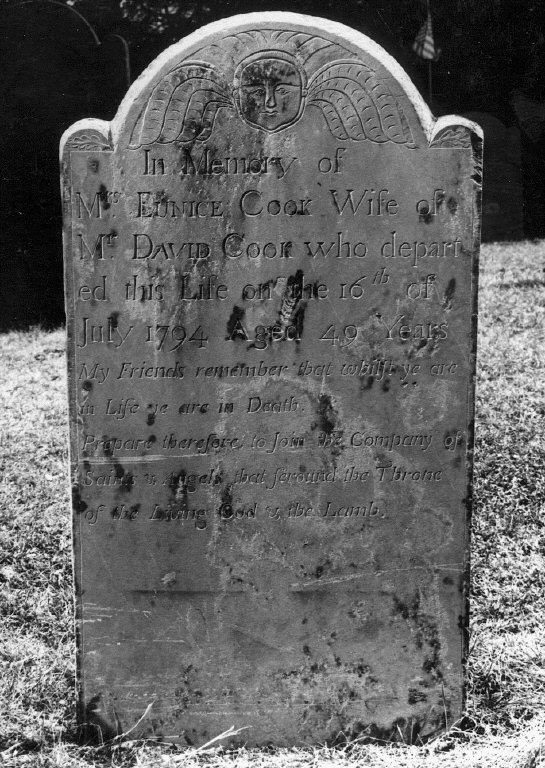 In Memory of
Mrs. EUNICE COOK Wife of
Mr. DAVID COOK who depart
ed this Life on the 16th of
July 1794 Aged 49 Years
My Friends remember that whilst ye are
in Life ye are in Death.
Prepare therefore, to Join the Company of
Saints & Angels that seround the Throne
of the Living God & the Lamb.